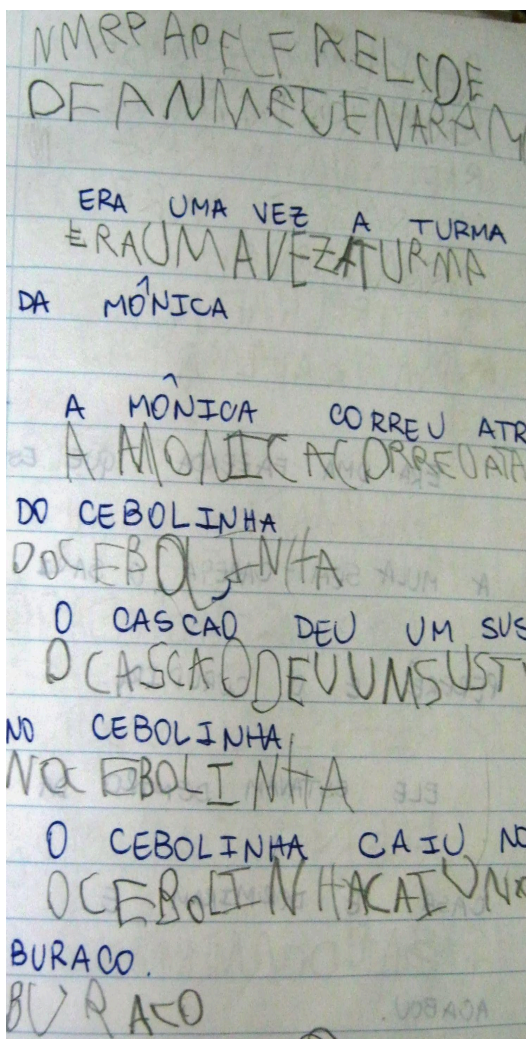 NMRPAPELFAELCDE
DFANMEJENARAM
ERA UMA VEZ A TURMA
ERAUMAVEZATURMA
DA MÔNICA
A MÔNICA CORREU ATR
AMONICACORREUATR
DO CEBOLINHA
DOCEBOLINHA
O CASCAO DEU UM SUS
OCASCAODEUUMSUST
NO CEBOLINHA
NOCEBOLINHA
O CEBOLINHA CAIU NO
OCEBOLINHACAIUNO
BURACO.
BURACO
ACABOU.